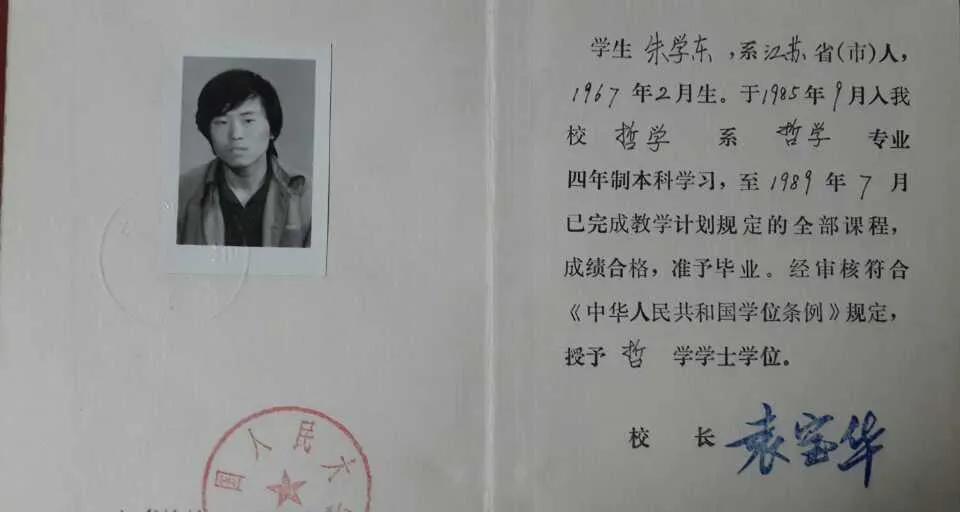 学生 朱学东，系江苏省(市)人，
1967年2月生。于1985年9月入我
校 哲学 系 哲学 专业
四年制本科学习，至1989年7月
已完成教学计划规定的全部课程，
成绩合格，准予毕业。经审核符合
《中华人民共和国学位条例》规定，
授予 哲 学学士学位。
校 长 袁宝华
国人民大